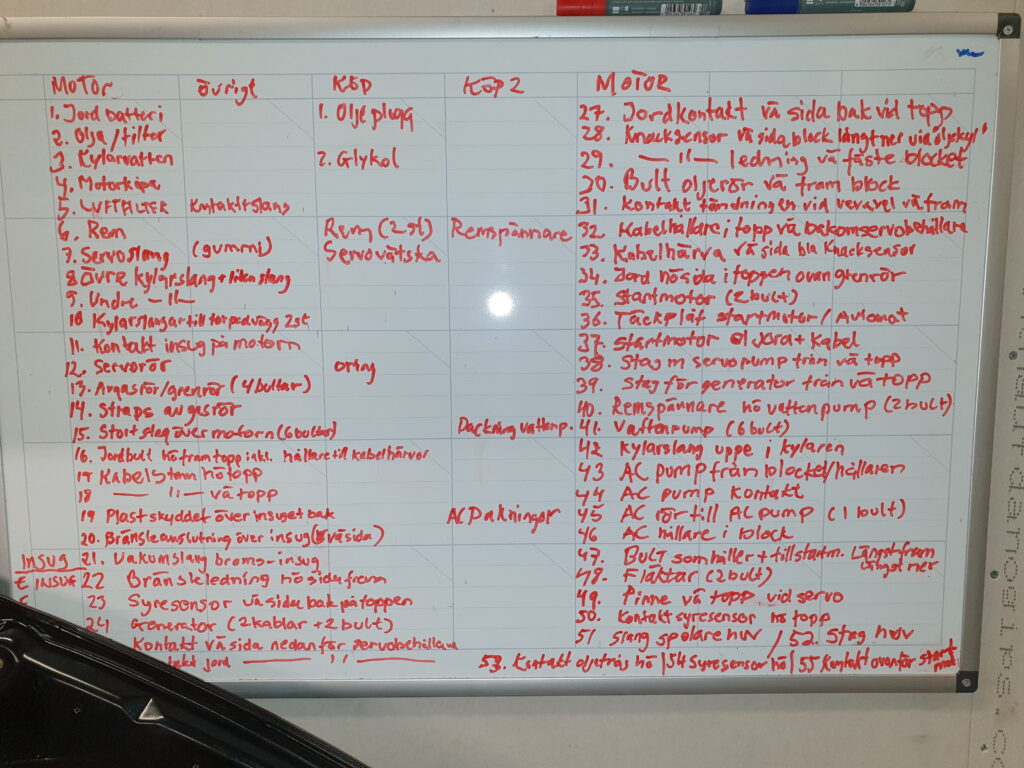 MOTOR
övrigt
KÖP
KÖP 2
MOTOR
1. Jord batteri
2. Olja/filter
3. Kylarvatten
4. Motorkåpa
5. LUFTFILTER
6. Rem
7. Servoslang (gummi)
8 ÖVRE kylarslang + liten slang
9. Undre — 11 —
10 Kylarslangar till torpedvägg 2st
11. Kontakt insug på motorn
12. Servorör
13. Avgasrör/grenrör (4 bultar)
14. Straps avgasrör
15. Stort slag över motorn (6 bultar)
16. Jordbult hö fram topp inkl. hållare till kabelhärvor
17 Kabelstam hö topp
18 — 11 — vä topp
19 Plastskyddet över insuget bak
20. Bränsleanslutning över insug (vä sida)
21. Vakumslang broms-insug
22 Bränsleledning hö sida fram
23 Syresensor vä sida bak på toppen
24 Generator (2 kablar + 2 bult)
Kontakt vä sida nedanför servobehållare
jord — 11 —
insug
INSUG
Kontakt slang
1. Olje plugg
2. Glykol
Rem (2 st)
Servovätska
oring
Remspännare
Packning vattenp.
AC Pakningar
27. Jordkontakt vä sida bak vid topp
28. Knacksensor vä sida block långt ner vid oljekyl
29. — 11 — ledning vä fäste blocket
30. Bult oljerör vä fram block
31. Kontakt tändningen vid vevaxel vä fram
32. Kabelhållare i topp vä bakom servobehållare
33. Kabelhärva vä sida bla Knacksensor
34. Jord hö sida i toppen ovan grenrör
35. Startmotor (2 bult)
36. Täckplåt startmotor/Automat
37. Startmotor el jord + Kabel
38. Stag m servopump från vä topp
39. Stag för generator från vä topp
40. Remspännare hö vattenpump (2 bult)
41. Vattenpump (6 bult)
42 Kylarslang uppe i kylaren
43 AC pump från blocket/hållaren
44 AC pump kontakt
45 AC rör till AC pump (1 bult)
46 AC hållare i block
47. Bult som håller + till startm. Längst fram
Längst ner
48. Fläktar (2 bult)
49. Pinne vä topp vid servo
50. Kontakt syresensor hö topp
51. Slang spolare huv / 52. Stag huv
53. Kontakt oljetråg hö | 54 Syresensor hö | 55 Kontakt ovanför start
mot